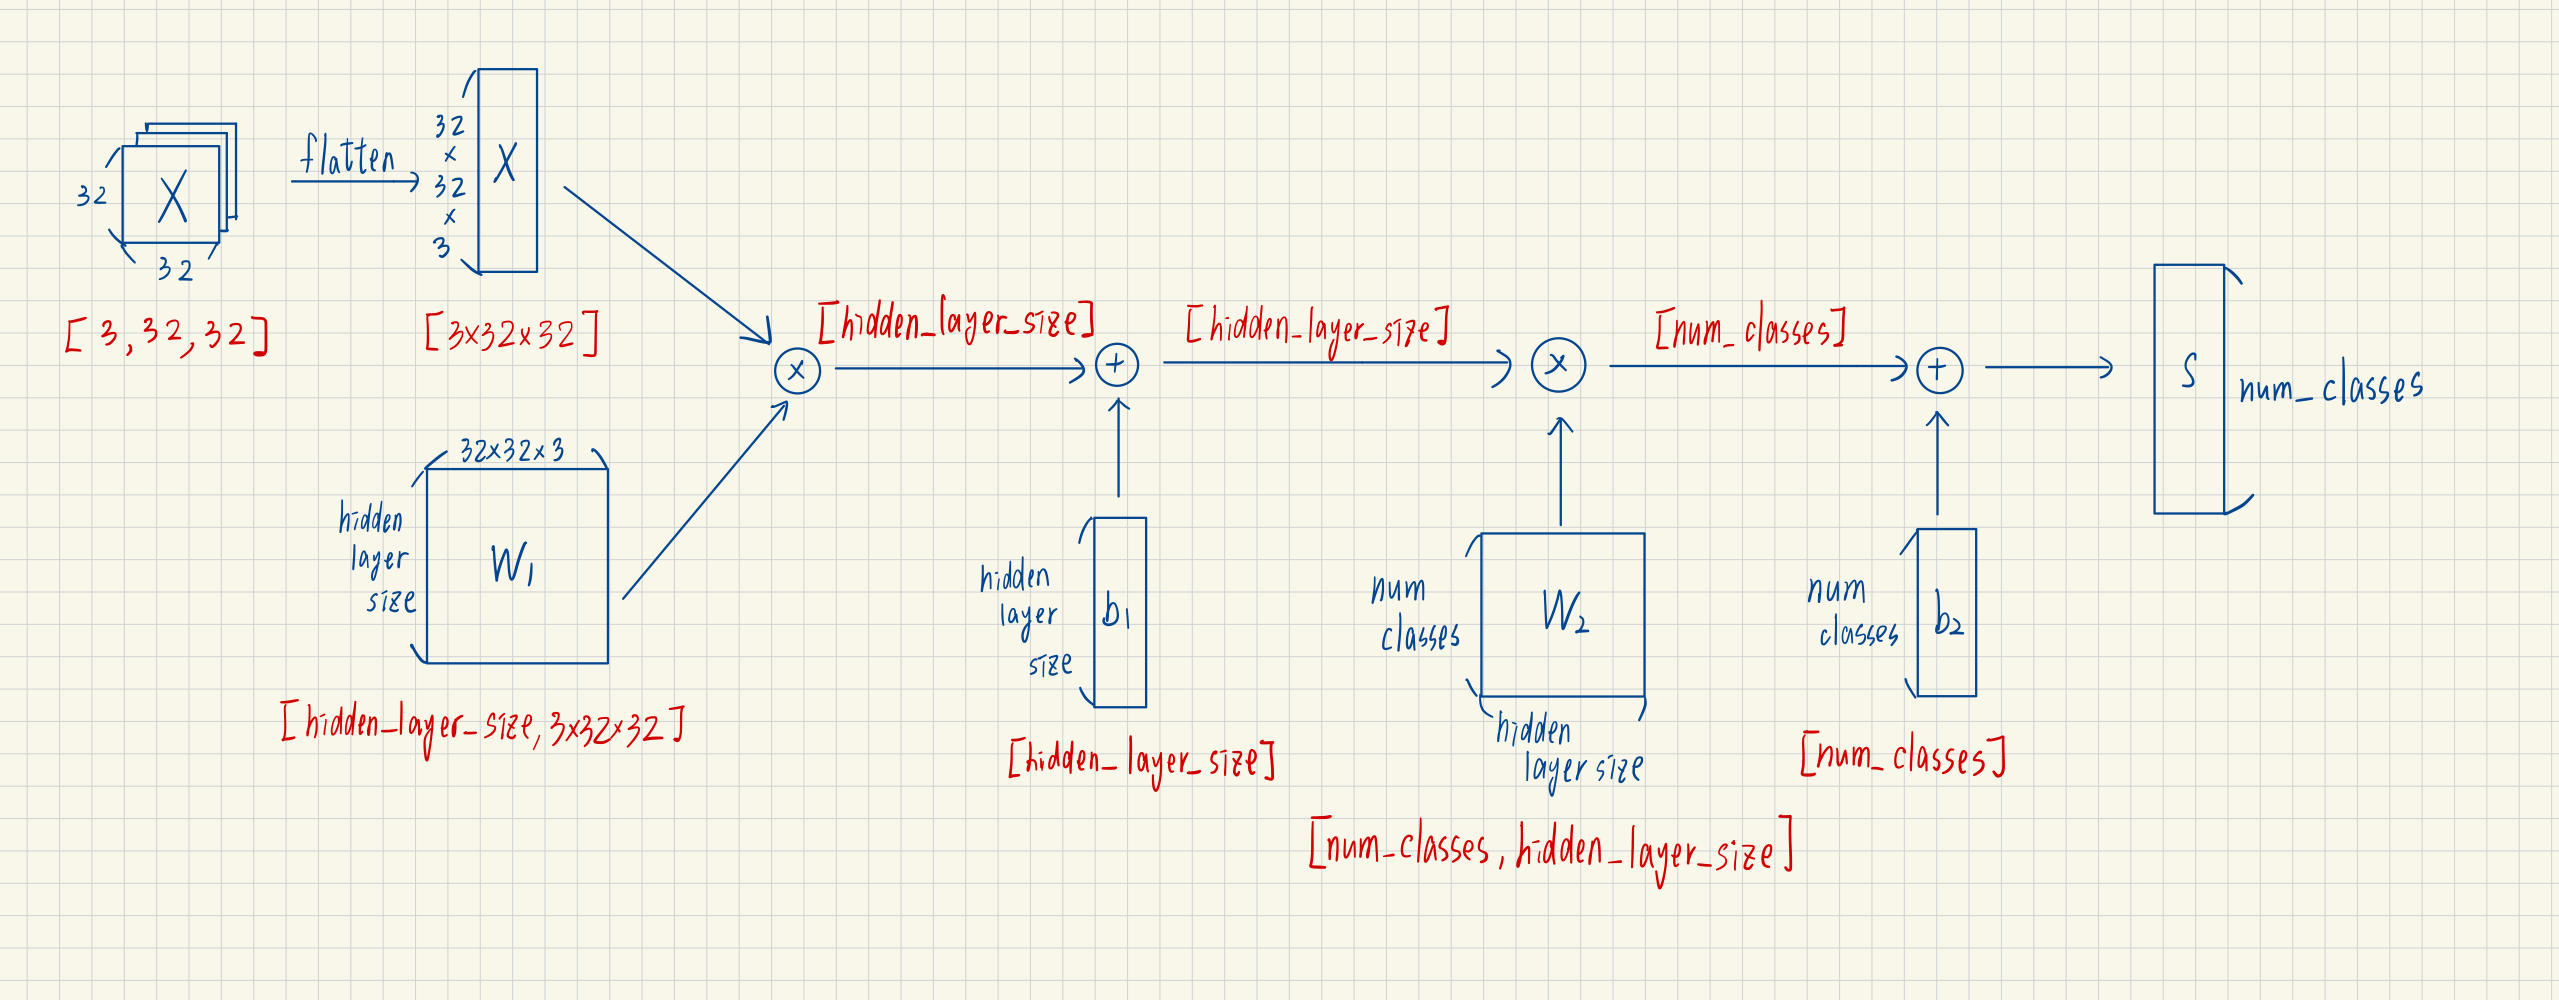 X
32
32
[3, 32, 32]
flatten
32
x
32
x
3
X
[3x32x32]
32x32x3
hidden
layer
size
W1
[hidden_layer_size, 3x32x32]
x
[hidden_layer_size]
+
hidden
layer
size
b1
[hidden_layer_size]
[hidden_layer_size]
x
num
classes
W2
hidden
layer size
[num_classes, hidden_layer_size]
[num_classes]
+
num
classes
b2
[num_classes]
S
num_classes